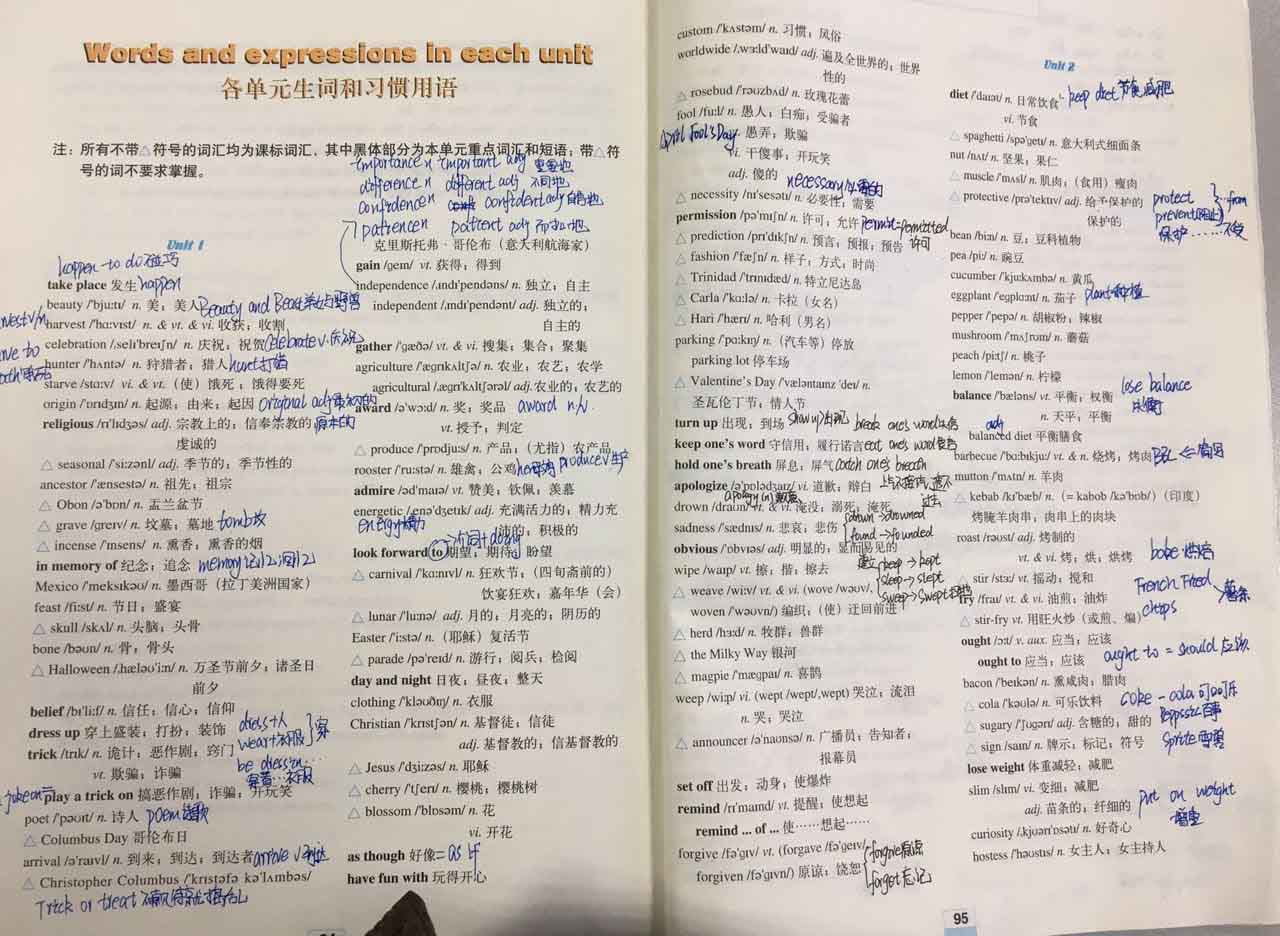 Words and expressions in each unit
各单元生词和习惯用语
注：所有不带△符号的词汇均为课标词汇，其中黑体部分为本单元重点词汇和短语；带△符
号的词不要求掌握。
importance n important adj
difference n different adj 不同地
confidence n confident adj
patience n patient adj
Unit 1
happen to do 碰巧
take place 发生 happen
beauty /'bju:tɪ/ n. 美；美人 Beauty and Beast 美女与野兽
harvest /'hɑ:vɪst/ n. & vt. & vi. 收获；收割
celebration /ˌselɪ'breɪʃn/ n. 庆祝；祝贺 celebrate v. 庆祝
hunter /'hʌntə/ n. 狩猎者；猎人 hunt 打猎
starve /stɑ:v/ vi. & vt.（使）饿死；饿得要死
origin /'ɒrɪdʒɪn/ n. 起源；由来；起因 original adj 最初的
religious /rɪ'lɪdʒəs/ adj. 宗教上的；信奉宗教的； 原本的
虔诚的
△ seasonal /'si:zənl/ adj. 季节的；季节性的
ancestor /'ænsestə/ n. 祖先；祖宗
△ Obon /ə'bɒn/ n. 盂兰盆节
△ grave /greɪv/ n. 坟墓；墓地 tomb 坟
△ incense /'ɪnsens/ n. 熏香；熏香的烟
in memory of 纪念；追念 memory 记忆,回忆
Mexico /'meksɪkəʊ/ n. 墨西哥（拉丁美洲国家）
feast /fi:st/ n. 节日；盛宴
△ skull /skʌl/ n. 头脑；头骨
bone /bəʊn/ n. 骨；骨头
△ Halloween /ˌhæləʊ'i:n/ n. 万圣节前夕；诸圣日
前夕
belief /bɪ'li:f/ n. 信任；信心；信仰
dress up 穿上盛装；打扮；装饰 dress+人
wear+衣服 } 穿
trick /trɪk/ n. 诡计；恶作剧；窍门
vt. 欺骗；诈骗 be dress in...
穿着…衣服
play a trick on 搞恶作剧；诈骗；开玩笑
poet /'pəʊɪt/ n. 诗人 poem 诗歌
△ Columbus Day 哥伦布日
arrival /ə'raɪvl/ n. 到来；到达；到达者 arrive v 到达
△ Christopher Columbus /'krɪstəfə kə'lʌmbəs/
Trick or treat 不请吃就捣乱
克里斯托弗·哥伦布（意大利航海家）
gain /geɪn/ vt. 获得；得到
independence /ˌɪndɪ'pendəns/ n. 独立；自主
independent /ˌɪndɪ'pendənt/ adj. 独立的；
自主的
gather /'gæðə/ vt. & vi. 搜集；集合；聚集
agriculture /'ægrɪkʌltʃə/ n. 农业；农艺；农学
agricultural /ˌægrɪ'kʌltʃərəl/ adj. 农业的；农艺的
award /ə'wɔ:d/ n. 奖；奖品 award n./v.
vt. 授予；判定
△ produce /'prɒdju:s/ n. 产品；（尤指）农产品
rooster /'ru:stə/ n. 雄禽；公鸡 hen 母鸡 produce v 生产
admire /əd'maɪə/ vt. 赞美；钦佩；羡慕
energetic /ˌenə'dʒetɪk/ adj. 充满活力的；精力充
沛的；积极的
energy 精力
look forward to 期望；期待；盼望
△ carnival /'kɑ:nɪvl/ n. 狂欢节；（四旬斋前的）
饮宴狂欢；嘉年华（会）
△ lunar /'lu:nə/ adj. 月的；月亮的；阴历的
Easter /'i:stə/ n.（耶稣）复活节
△ parade /pə'reɪd/ n. 游行；阅兵；检阅
day and night 日夜；昼夜；整天
clothing /'kləʊðɪŋ/ n. 衣服
Christian /'krɪstʃən/ n. 基督徒；信徒
adj. 基督教的；信基督教的
△ Jesus /'dʒi:zəs/ n. 耶稣
△ cherry /'tʃerɪ/ n. 樱桃；樱桃树
△ blossom /'blɒsəm/ n. 花
vi. 开花
as though 好像 = as if
have fun with 玩得开心
custom /'kʌstəm/ n. 习惯；风俗
worldwide /ˌwɜ:ld'waɪd/ adj. 遍及全世界的；世界
性的
△ rosebud /'rəʊzbʌd/ n. 玫瑰花蕾
fool /fu:l/ n. 愚人；白痴；受骗者
April Fool's Day 愚弄；欺骗
vi. 干傻事；开玩笑
adj. 傻的
necessary 必需的
△ necessity /nɪ'sesətɪ/ n. 必要性；需要
permission /pə'mɪʃn/ n. 许可；允许 permit-permitted
许可
△ prediction /prɪ'dɪkʃn/ n. 预言；预报；预告
△ fashion /'fæʃn/ n. 样子；方式；时尚
△ Trinidad /'trɪnɪdæd/ n. 特立尼达岛
△ Carla /'kɑ:lə/ n. 卡拉（女名）
△ Hari /'hærɪ/ n. 哈利（男名）
parking /'pɑ:kɪŋ/ n.（汽车等）停放
parking lot 停车场
△ Valentine's Day /'væləntaɪnz 'deɪ/ n.
圣瓦伦丁节；情人节
turn up 出现；到场 show up 出现 break one's word 失信
keep one's word 守信用；履行诺言 eat one's word 食言
hold one's breath 屏息；屏气 catch one's breath
apologize /ə'pɒlədʒaɪz/ vi. 道歉；辩白
apology (n) 道歉
drown /draʊn/ vt. & vi. 淹没；溺死；淹死
sadness /'sædnɪs/ n. 悲哀；悲伤 { drown → drowned
found → founded
obvious /'ɒbvɪəs/ adj. 明显的；显而易见的
wipe /waɪp/ vt. 擦；揩；擦去 keep → kept
sleep → slept
△ weave /wi:v/ vt. & vi. (wove /wəʊv/, sweep → swept
woven /'wəʊvn/) 编织；（使）迂回前进
△ herd /hɜ:d/ n. 牧群；兽群
△ the Milky Way 银河
△ magpie /'mægpaɪ/ n. 喜鹊
weep /wi:p/ vi. (wept /wept/, wept) 哭泣；流泪
n. 哭；哭泣
△ announcer /ə'naʊnsə/ n. 广播员；告知者；
报幕员
set off 出发；动身；使爆炸
remind /rɪ'maɪnd/ vt. 提醒；使想起
remind ... of ... 使……想起……
forgive /fə'gɪv/ vt. (forgave /fə'geɪv/, forgive 原谅
forgiven /fə'gɪvn/) 原谅；饶恕 forget 忘记
Unit 2
diet /'daɪət/ n. 日常饮食 keep diet 节食减肥
vi. 节食
△ spaghetti /spə'getɪ/ n. 意大利式细面条
nut /nʌt/ n. 坚果；果仁
△ muscle /'mʌsl/ n. 肌肉；（食用）瘦肉
△ protective /prə'tektɪv/ adj. 给予保护的；
保护的
protect
prevent 阻止 } from
保护……不受
bean /bi:n/ n. 豆；豆科植物
pea /pi:/ n. 豌豆
cucumber /'kju:kʌmbə/ n. 黄瓜
eggplant /'egplɑ:nt/ n. 茄子 plant 种植
pepper /'pepə/ n. 胡椒粉；辣椒
mushroom /'mʌʃrʊm/ n. 蘑菇
peach /pi:tʃ/ n. 桃子
lemon /'lemən/ n. 柠檬
balance /'bæləns/ vt. 平衡；权衡 lose balance
n. 天平；平衡 失衡
adj
balanced diet 平衡膳食
barbecue /'bɑ:bɪkju:/ vt. & n. 烧烤；烤肉
mutton /'mʌtn/ n. 羊肉
△ kebab /kɪ'bæb/ n. (= kabob /kə'bɒb/)（印度）
烤腌羊肉串；肉串上的肉块
roast /rəʊst/ adj. 烤制的
vt. & vi. 烤；烘；烘烤 bake 烘焙
△ stir /stɜ:/ vt. 摇动；搅和
fry /fraɪ/ vt. & vi. 油煎；油炸 French Fried
chips } 薯条
△ stir-fry vt. 用旺火炒（或煎、煸）
ought /ɔ:t/ v. aux. 应当；应该
ought to 应当；应该 ought to = should 应该
bacon /'beɪkən/ n. 熏咸肉；腊肉
△ cola /'kəʊlə/ n. 可乐饮料 coke - cola 可口可乐
△ sugary /'ʃʊgərɪ/ adj. 含糖的；甜的
△ sign /saɪn/ n. 牌示；标记；符号 Sprite 雪碧
lose weight 体重减轻；减肥
slim /slɪm/ vi. 变细；减肥
adj. 苗条的；纤细的 put on weight
增重
curiosity /ˌkjʊərɪ'ɒsətɪ/ n. 好奇心
hostess /'həʊstɪs/ n. 女主人；女主持人
95